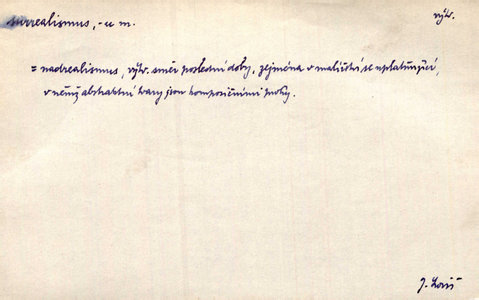 surrealismus, -u m. výtv.
= nadrealismus, výtv. směr poslední doby, zejména v malířství se uplatňující,
v němž abstraktní tvary jsou komposičními prvky.
J.